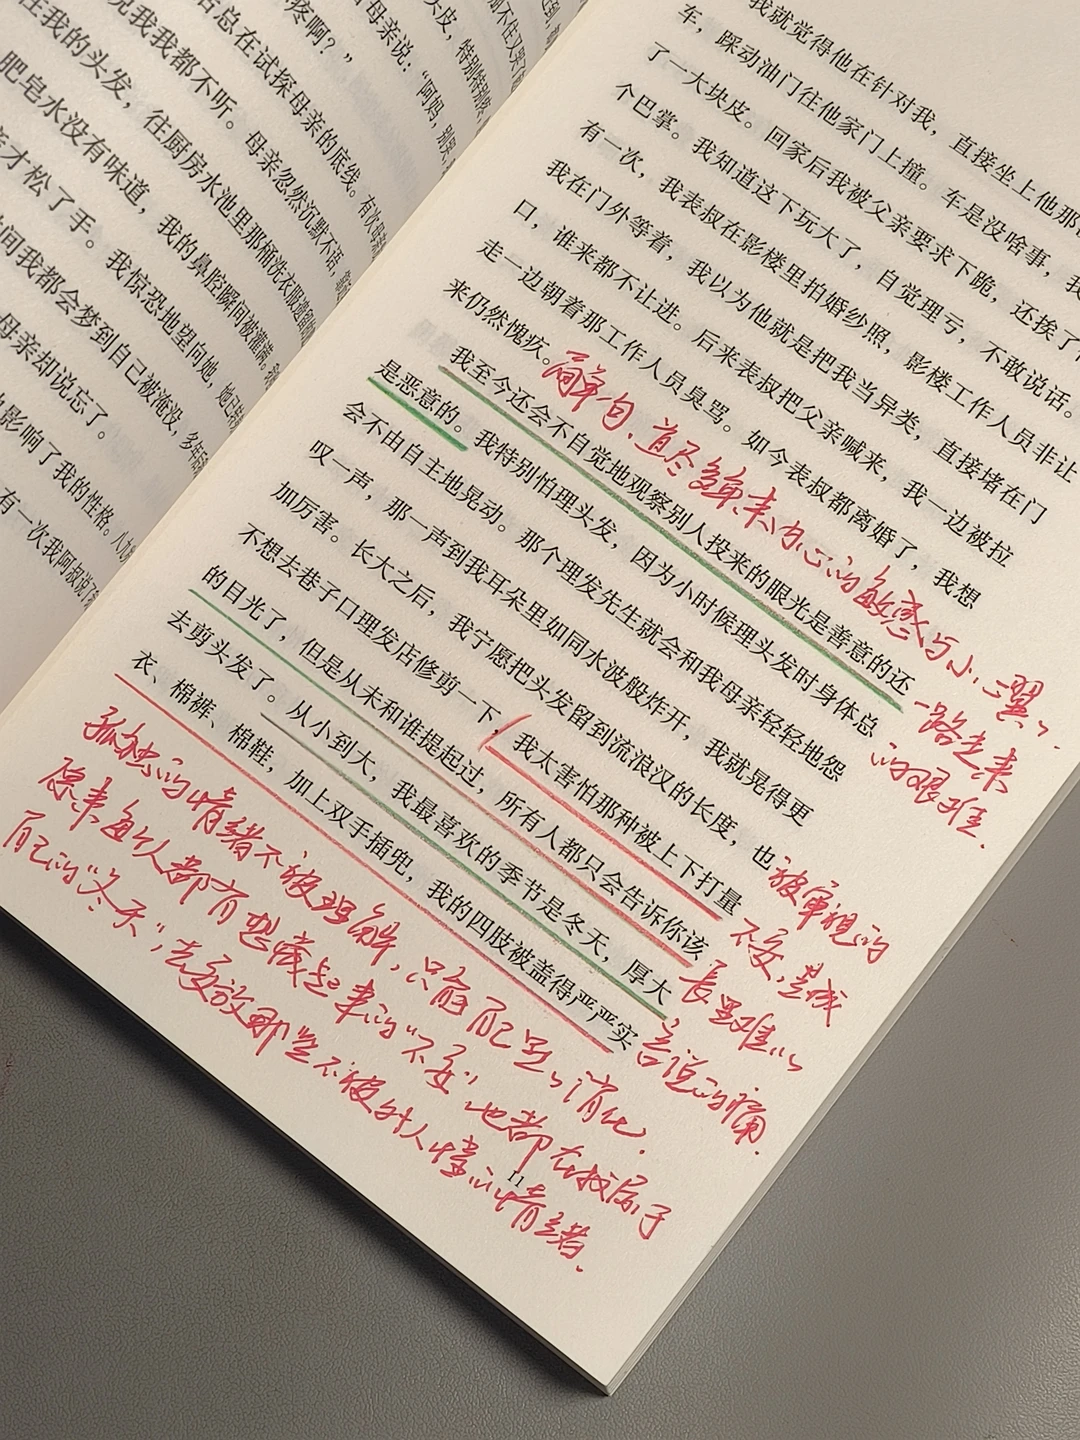 疼啊？”
母亲说：“阿妈，别哭
后总在试探母亲的底线。有次母亲
说我我都不听。母亲忽然沉默不语，
住我的头发，往厨房水池里那桶洗衣服遗留
肥皂水没有味道，我的鼻腔瞬间被灌满。
亲才松了手。我惊恐地望向她，她已转
间我都会梦到自己被淹没，多年后
母亲却说忘了。
影响了我的性格。八九
有一次我阿叔说了
我就觉得他在针对我，直接坐上他那
车，踩动油门往他家门上撞。车是没啥事，我
了一大块皮。回家后我被父亲要求下跪，还挨了
个巴掌。我知道这下玩大了，自觉理亏，不敢说话。
有一次，我表叔在影楼里拍婚纱照，影楼工作人员非让
我在门外等着，我以为他就是把我当异类，直接堵在门
口，谁来都不让进。后来表叔把父亲喊来，我一边被拉
走一边朝着那工作人员臭骂。如今表叔都离婚了，我想
来仍然愧疚。
我至今还会不自觉地观察别人投来的眼光是善意的还
是恶意的。我特别怕理头发，因为小时候理头发时身体总
会不由自主地晃动。那个理发先生就会和我母亲轻轻地怨
叹一声，那一声到我耳朵里如同水波般炸开，我就晃得更
加厉害。长大之后，我宁愿把头发留到流浪汉的长度，也
不想去巷子口理发店修剪一下，我太害怕那种被上下打量
的目光了，但是从未和谁提起过，所有人都只会告诉你该
去剪头发了。从小到大，我最喜欢的季节是冬天，厚大
衣、棉裤、棉鞋，加上双手插兜，我的四肢被盖得严严实
11
简单句，道尽多年来内心的敏感与小心翼翼，
一路走来
的艰难.
被审视的
不安，是成
长里难以
言说的痛.
孤独的情绪不被理解，只能自己默默消化.
原来每个人都有想藏起来的“不安”，也都在找属于
自己的“冬天”，去安放那些不被外人懂的情绪.